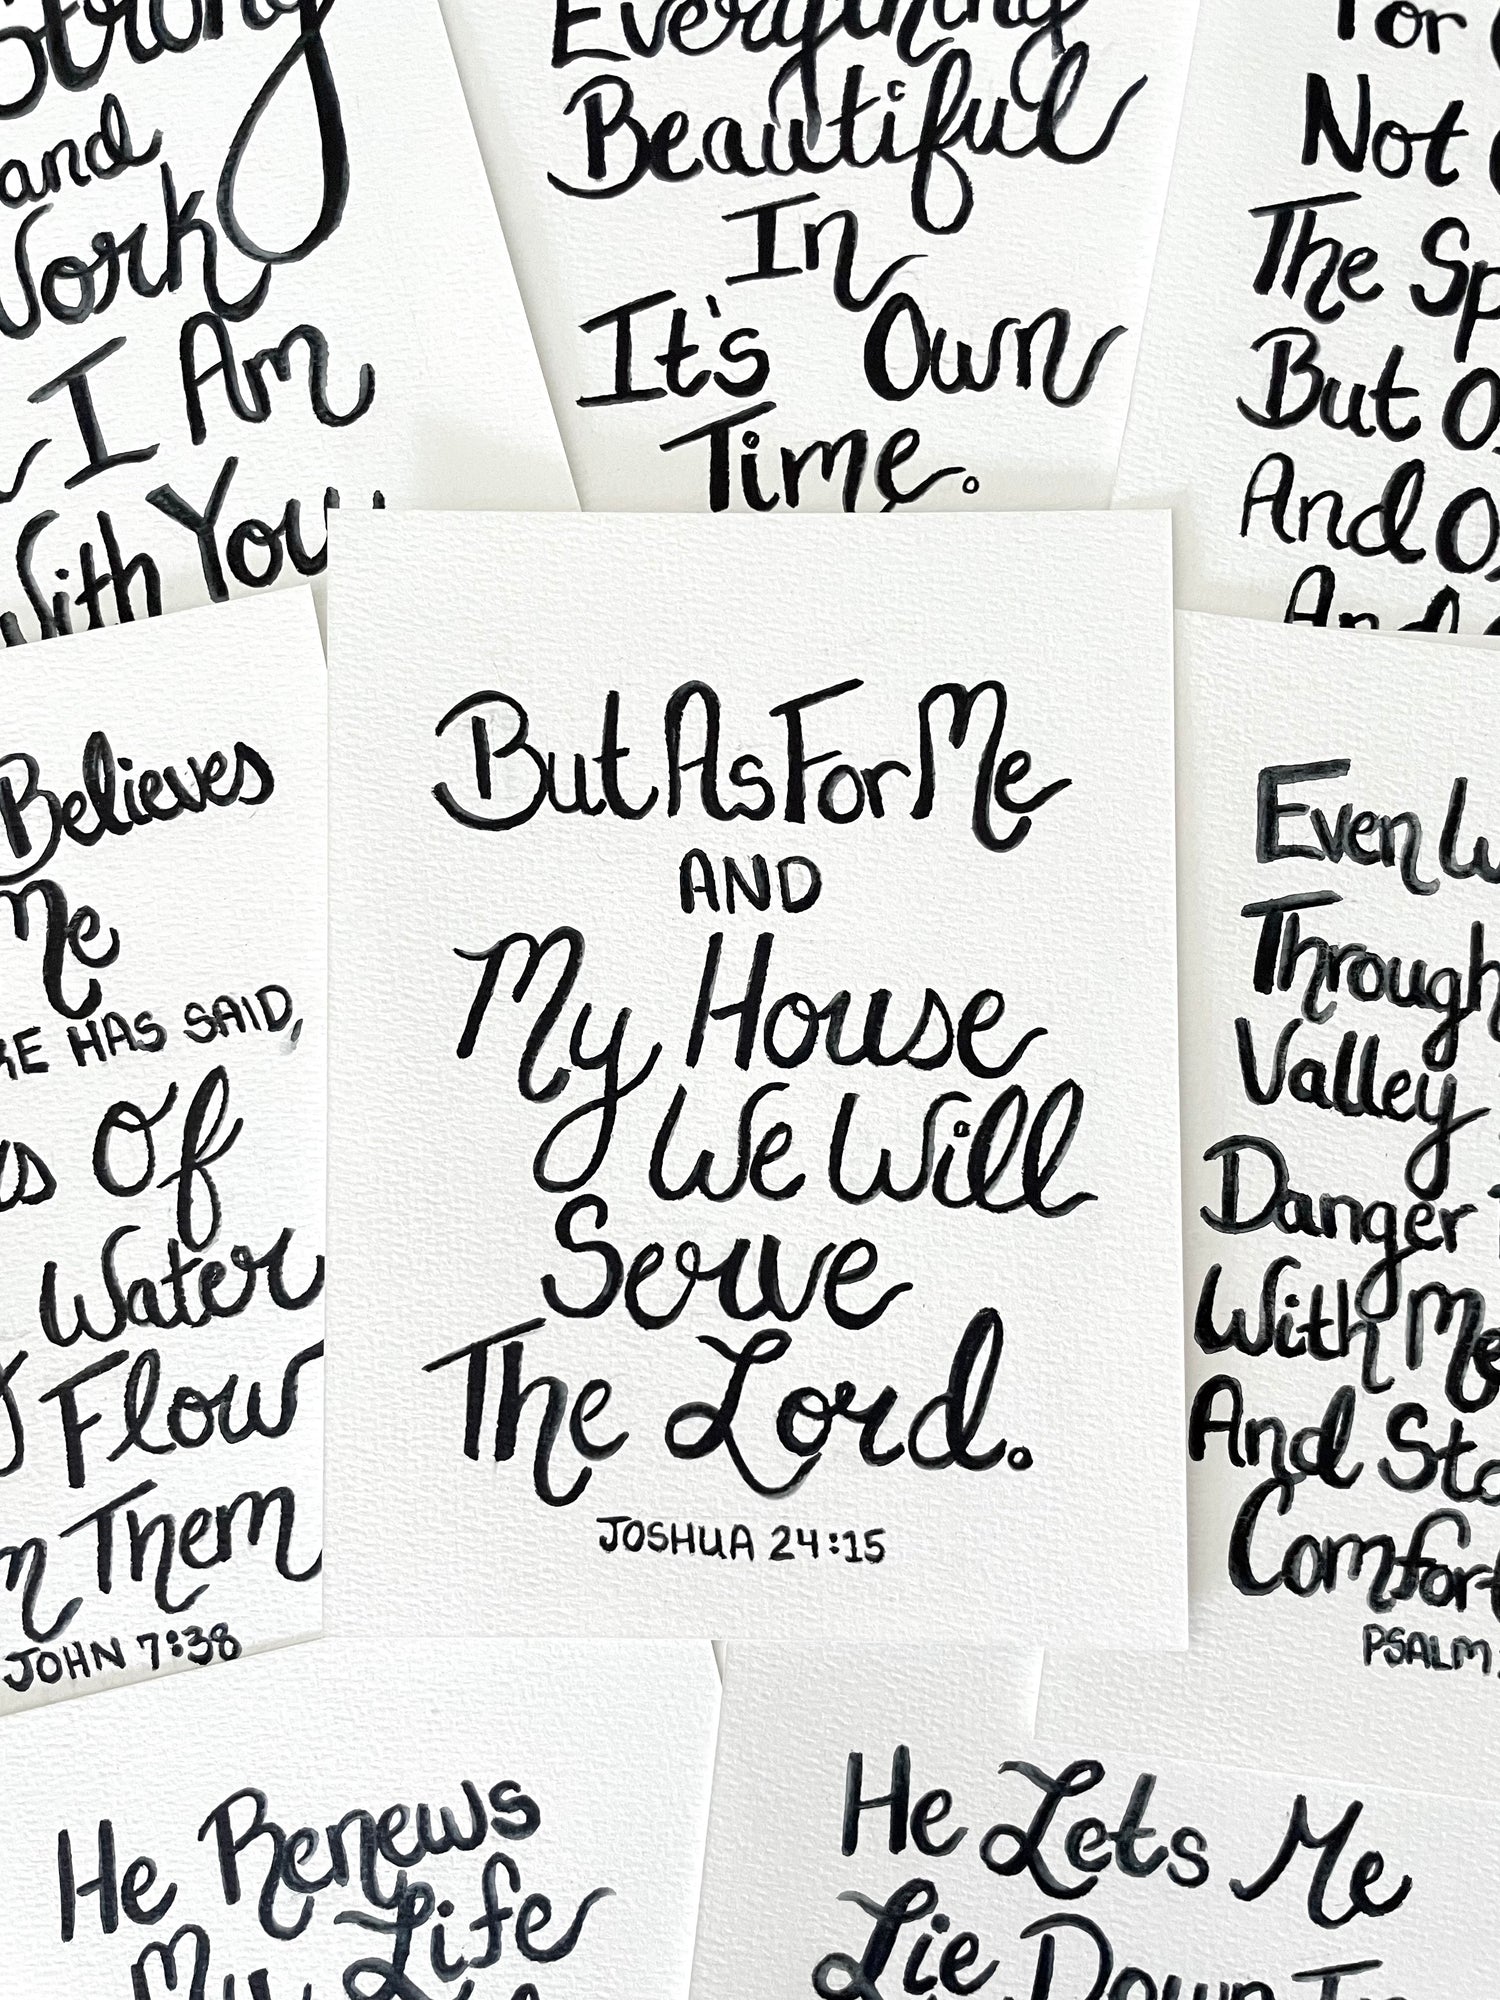 Strong
and
Work
I Am
With You
Everything
Beautiful
In
It's Own
Time.
For
Not
The
But
And
And
Believes
Me
HAS SAID,
Of
Water
Flow
Them
JOHN 7:38
But As For Me
AND
My House
We Will
Serve
The Lord.
JOSHUA 24:15
Even
Through
Valley
Danger
With Me
And
Comfort
PSALM
He Renews
My Life
He Lets Me
Lie Down In